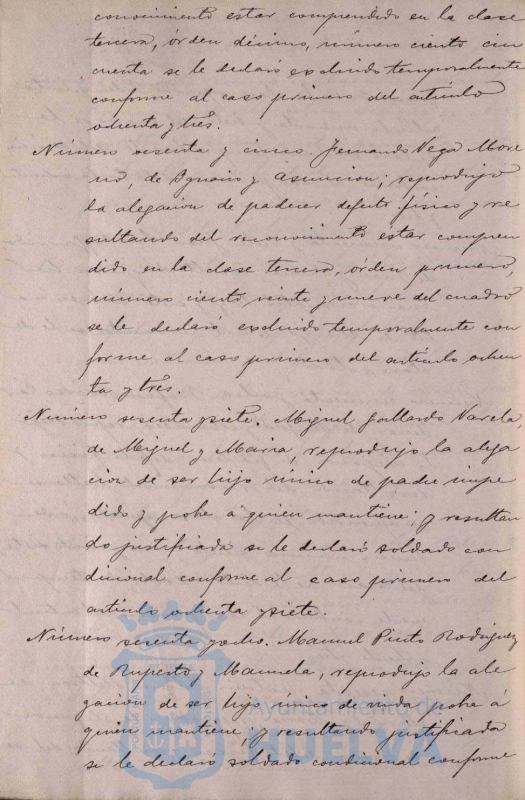 conocimiento estar comprendido en la clase
tercera, órden décimo, número ciento cin
cuenta se le declaró excluido temporalmente
conforme al caso primero del artículo
ochenta y tres.
Número sesenta y cinco. Fernando Vega More
no, de Ignacio y Asuncion; reprodujo
la alegacion de padecer defecto físico y re
sultando del reconocimiento estar compren
dido en la clase tercera, órden primero,
número ciento veinte y nueve del cuadro
se le declaró excluido temporalmente con
forme al caso primero del artículo ochen
ta y tres.
Número sesenta y siete. Miguel Gallardo Varela,
de Miguel y Maria, reprodujo la alega
cion de ser hijo único de padre impe
dido y pobre á quien mantiene; y resultan
do justificada se le declaró soldado con
dicional conforme al caso primero del
artículo ochenta y siete.
Número sesenta y ocho. Manuel Pinto Rodriguez
de Ruperto y Manuela, reprodujo la ale
gacion de ser hijo único de viuda pobre á
quien mantiene; y resultando justificada
se le declaró soldado condicional conforme
Ayuntamiento de
HUELVA